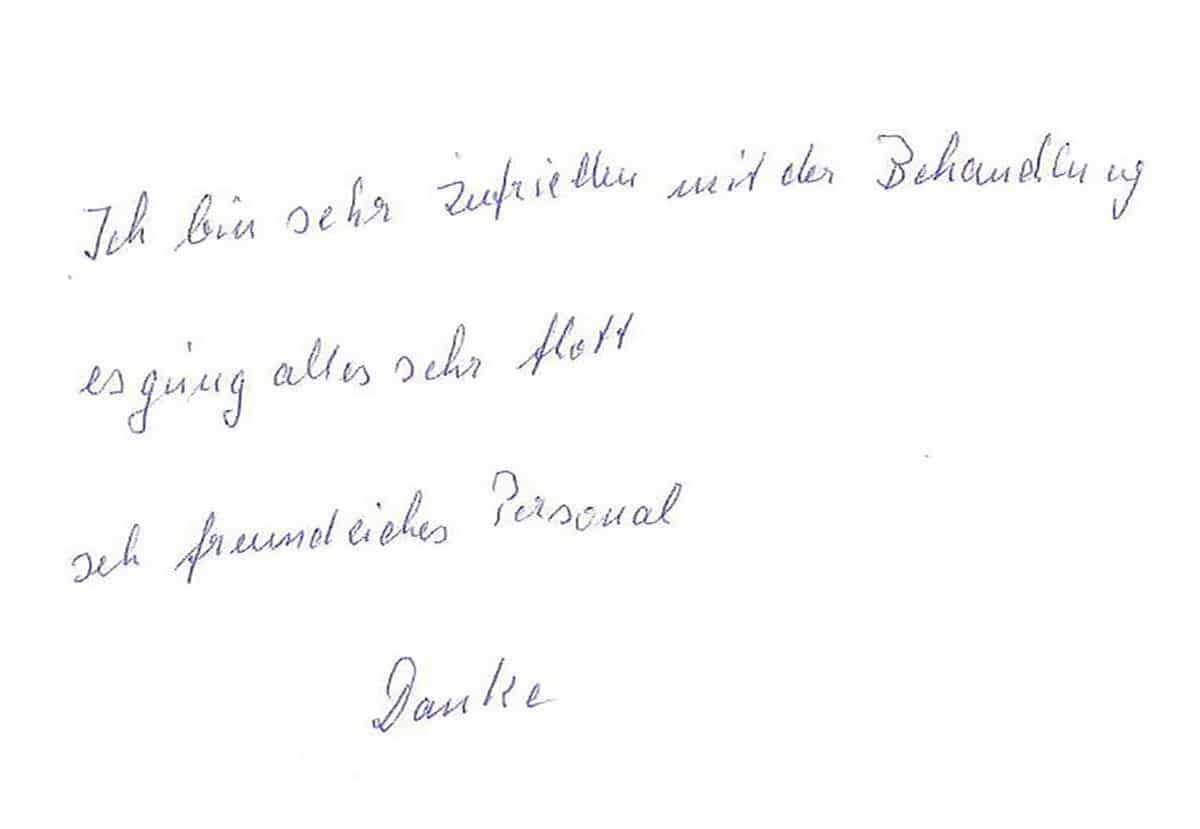 Ich bin sehr zufrieden mit der Behandlung
es ging alles sehr flott
seh freundliches Personal
Danke